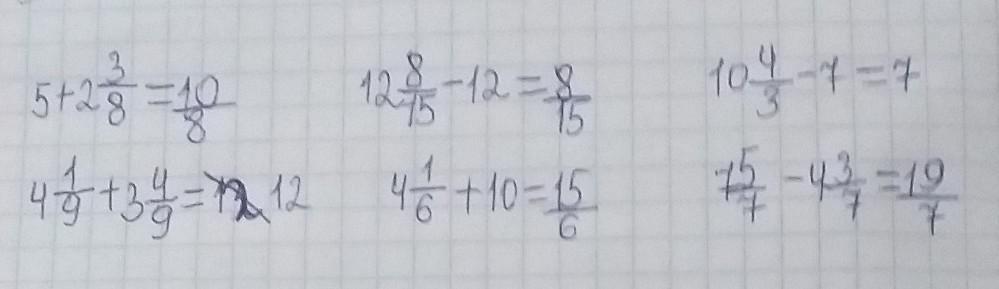 5+2 3/8 = 10/8   12 8/15 - 12 = 8/15   10 4/3 - 7 = 7
4 1/9 + 3 4/9 = 12   4 1/6 + 10 = 15/6   7 5/7 - 4 3/7 = 19/7